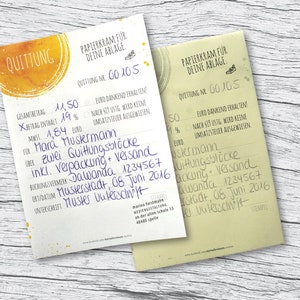 QUITTUNG
PAPIERKRAM FÜR
DEINE ABLAGE.
QUITTUNG NR. 00105
GESAMTBETRAG 11,50 EURO DANKEND ERHALTEN!
X BETRAG ENTHÄLT 19 % NACH §19 USTG. WIRD KEINE
MWST. 1,84 EURO UMSATZSTEUER AUSGEWIESEN.
FÜR Mara Mustermann
ÜBER zwei Quittungsblöcke
inkl. Verpackung + Versand
BUCHUNGSVERMERK Dawanda 1234567
ORT/DATUM Musterstadt, 08. Juni 2016
UNTERSCHRIFT Muster Unterschrift
an der alten schule 13
48480 spelle
PAPIERKRAM FÜR
DEINE ABLAGE.
QUITTUNG NR. 00105
EURO DANKEND ERHALTEN!
% NACH §19 USTG. WIRD KEINE
UMSATZSTEUER AUSGEWIESEN.
Mustermann
Quittungsblöcke
Verpackung + Versand
Dawanda 1234567
08. Juni 2016
Unterschrift